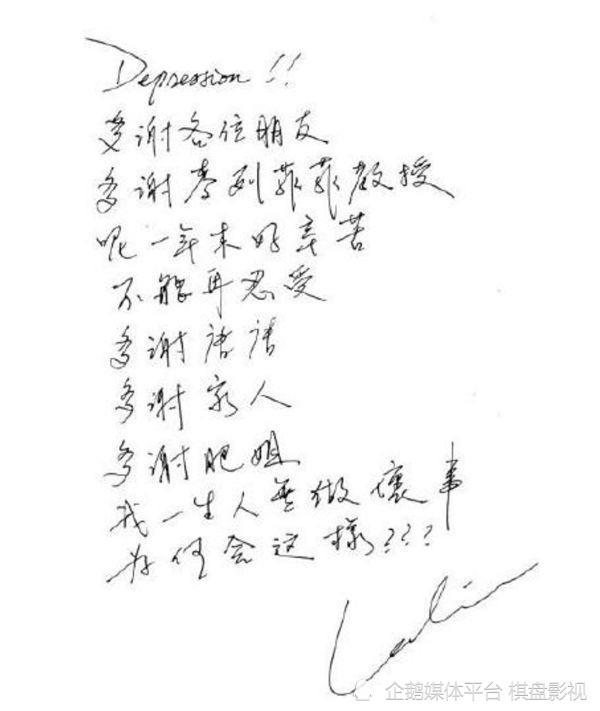 Depression!!
多谢各位朋友
多谢李列菲菲教授
呢一年来好辛苦
不能再忍受
多谢唐唐
多谢家人
多谢肥姐
我一生人無做壞事
为何会这樣???
企鹅媒体平台 棋盘影视